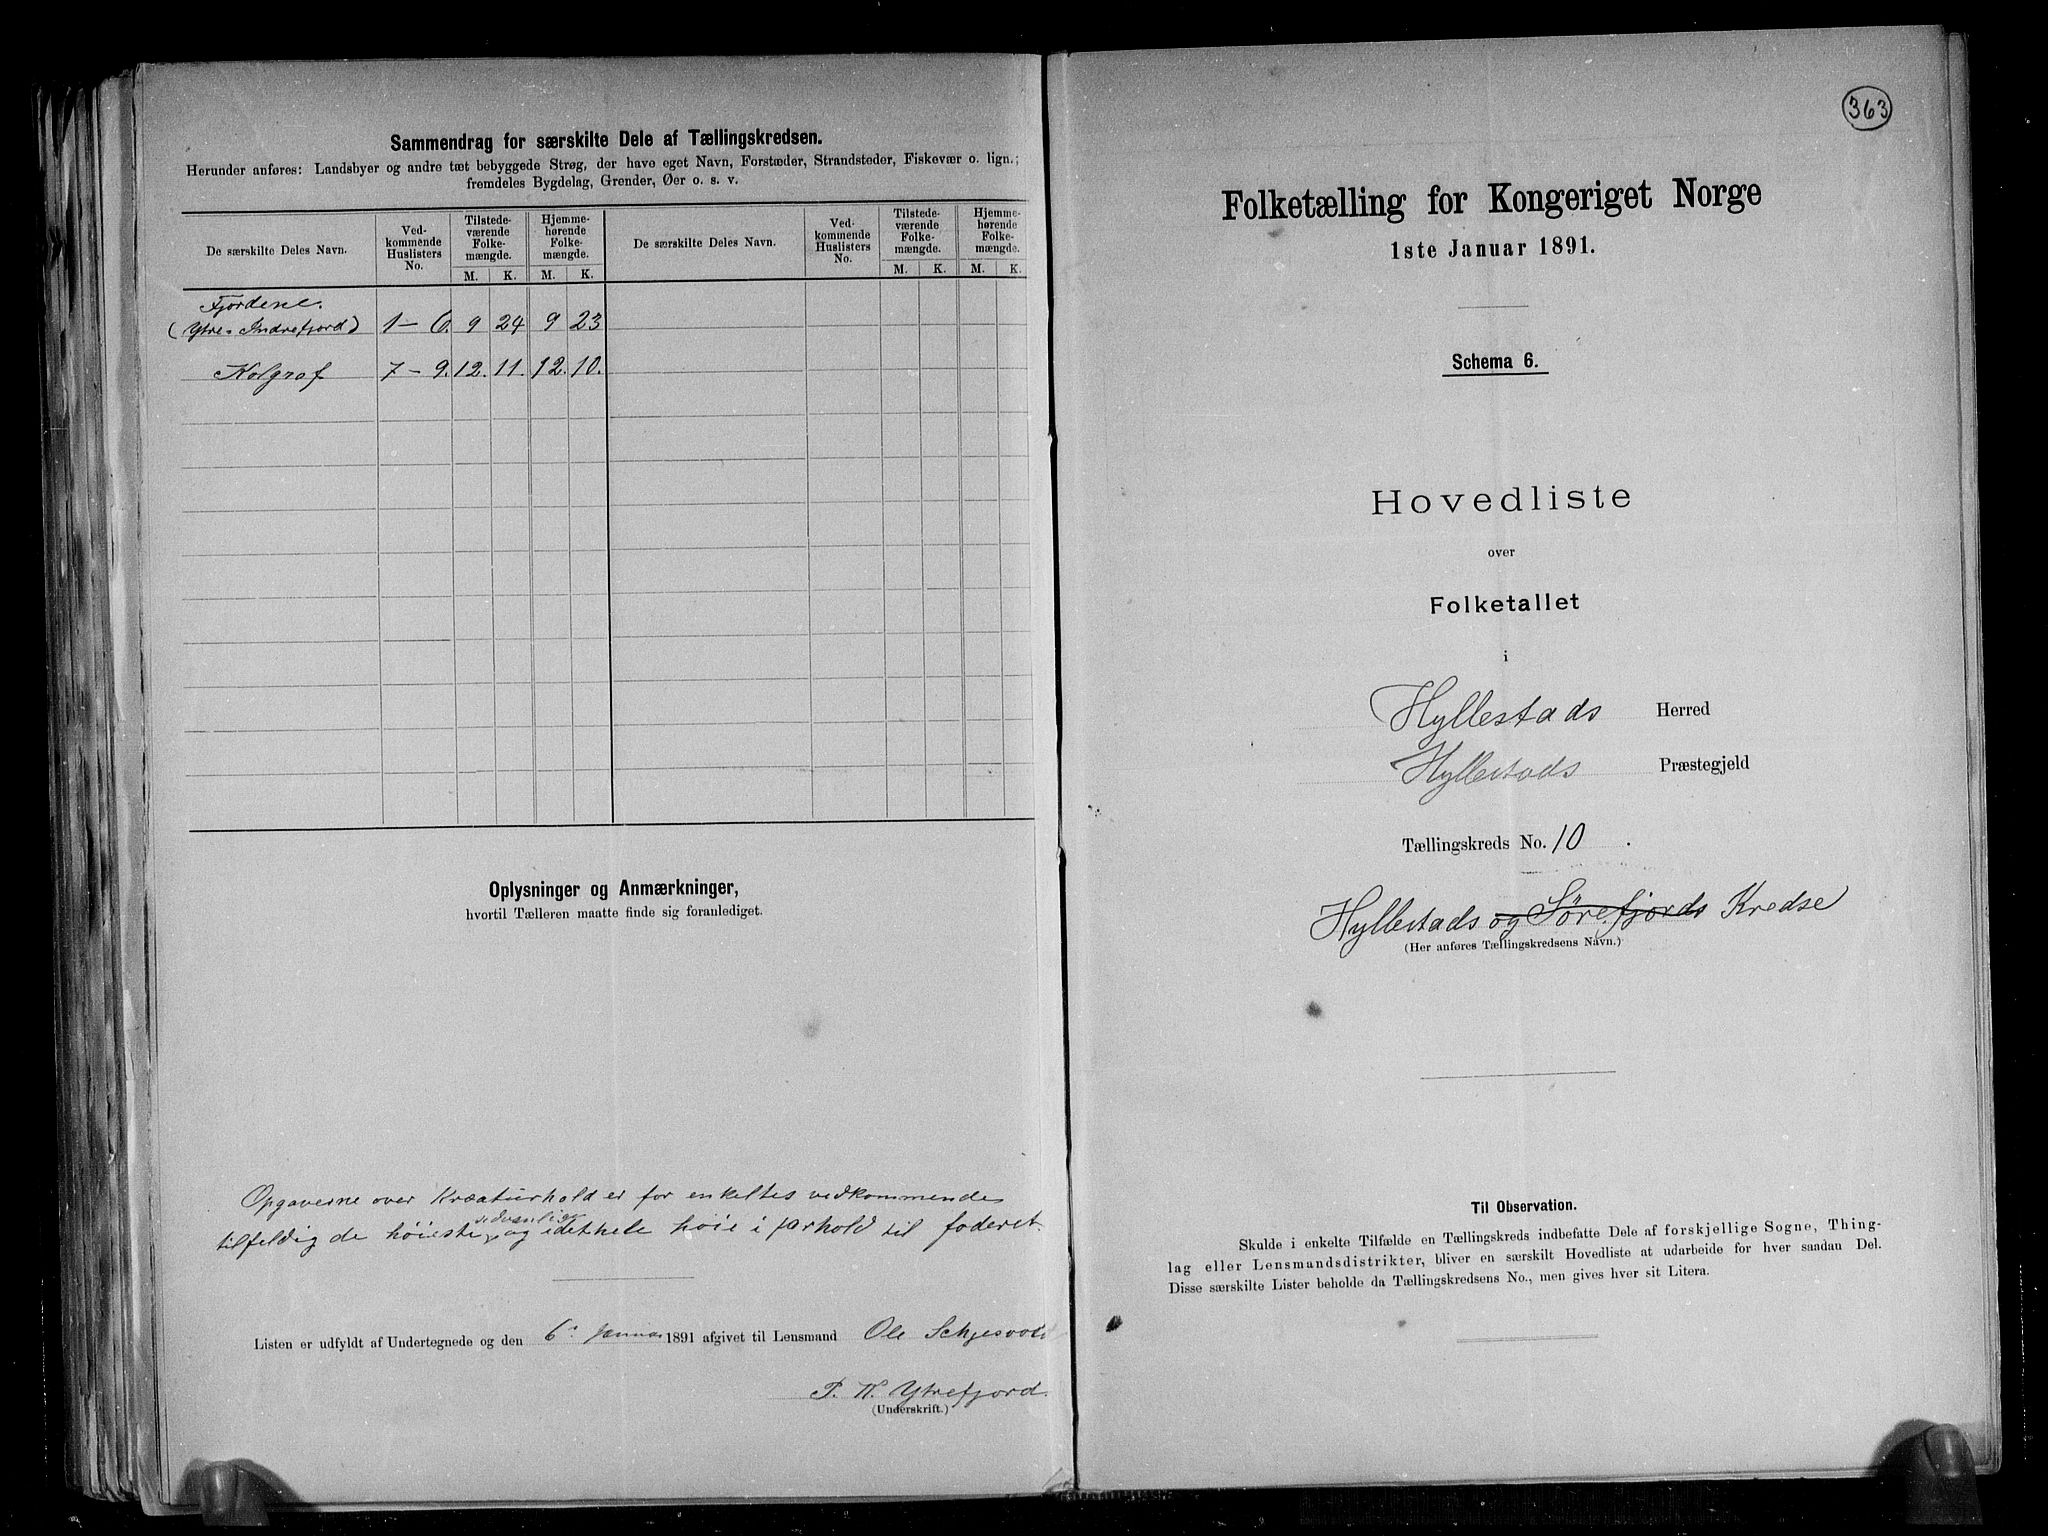 Sammendrag for særskilte Dele af Tællingskredsen.
Herunder anføres: Landsbyer og andre tæt bebyggede Strøg, der have eget Navn, Forstæder, Strandsteder, Fiskevær o. lign.;
fremdeles Bygdelag, Grender, Øer o. s. v.
De særskilte Deles Navn. Ved-kommende Huslisters No. Tilstede-værende Folke-mængde. M. K. Hjemme-hørende Folke-mængde. M. K. De særskilte Deles Navn. Ved-kommende Huslisters No. Tilstede-værende Folke-mængde. M. K. Hjemme-hørende Folke-mængde. M. K.
Fjordene.
(Ytre- Indrefjord) 1 – 6. 9 24 9 23
Kolgrof 7 – 9. 12. 11. 12. 10.
Oplysninger og Anmærkninger,
hvortil Tælleren maatte finde sig foranlediget.
Opgaverne over Kreaturhold er for enkeltes vedkommende
tilfeldig de høieste sedvanlige og idethele høie i forhold til foderet.
Listen er udfyldt af Undertegnede og den 6te Januar 1891 afgivet til Lensmand Ole
P. H. Ytrefjord.
(Underskrift.)
363
Folketælling for Kongeriget Norge
1ste Januar 1891.
Schema 6.
Hovedliste
over
Folketallet
i
Hyllestads Herred
Hyllestads Præstegjeld
Tællingskreds No. 10.
Hyllestads og Sørefjords Kredse
(Her anføres Tællingskredsens Navn.)
Til Observation.
Skulde i enkelte Tilfælde en Tællingskreds indbefatte Dele af forskjellige Sogne, Thing-
lag eller Lensmandsdistrikter, bliver en særskilt Hovedliste at udarbeide for hver saadan Del.
Disse særskilte Lister beholde da Tællingskredsens No., men gives hver sit Litera.